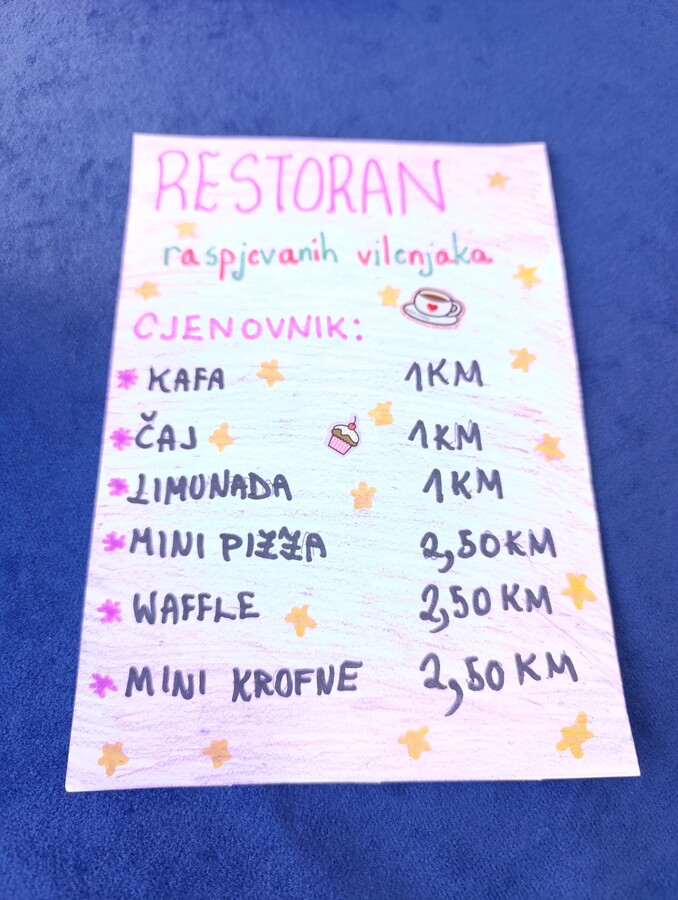 RESTORAN
raspjevanih vilenjaka
CJENOVNIK:
* KAFA 1KM
* ČAJ 1KM
* LIMUNADA 1KM
* MINI PIZZA 2,50KM
* WAFFLE 2,50 KM
* MINI KROFNE 2,50 KM